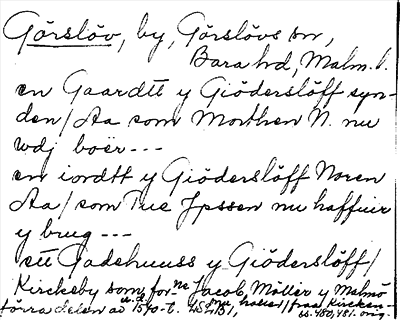 Görslöv, by, Görslövs sn,
Bara hd, Malm. l.
en Gaardtt y Giöderslöff syn-
den / Aa som Morthen N. nu
wdj boër ---
en iordtt y Giöderslöff Noren
Aa / som Tue Jpssen nu haffuer
y brug ---
ett Gadehuuss y Giöderslöff /
Kirckeby som for-ne Jacob Möller y Malmö
nu, holler / fraa Kircken--
förra delen av 1570-t.
ss. 480, 481. orig.